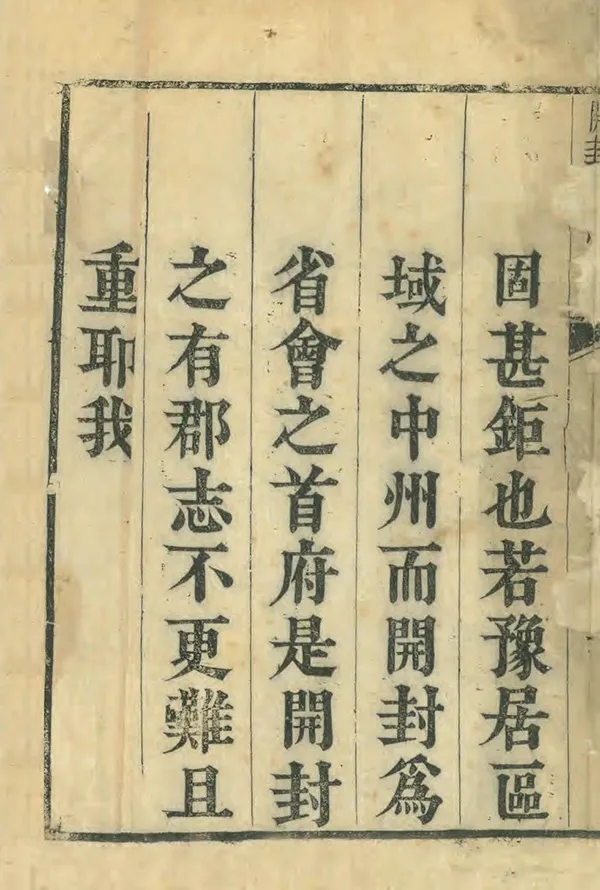 開封
固甚鉅也若豫居區
域之中州而開封爲
省會之首府是開封
之有郡志不更難且
重耶我